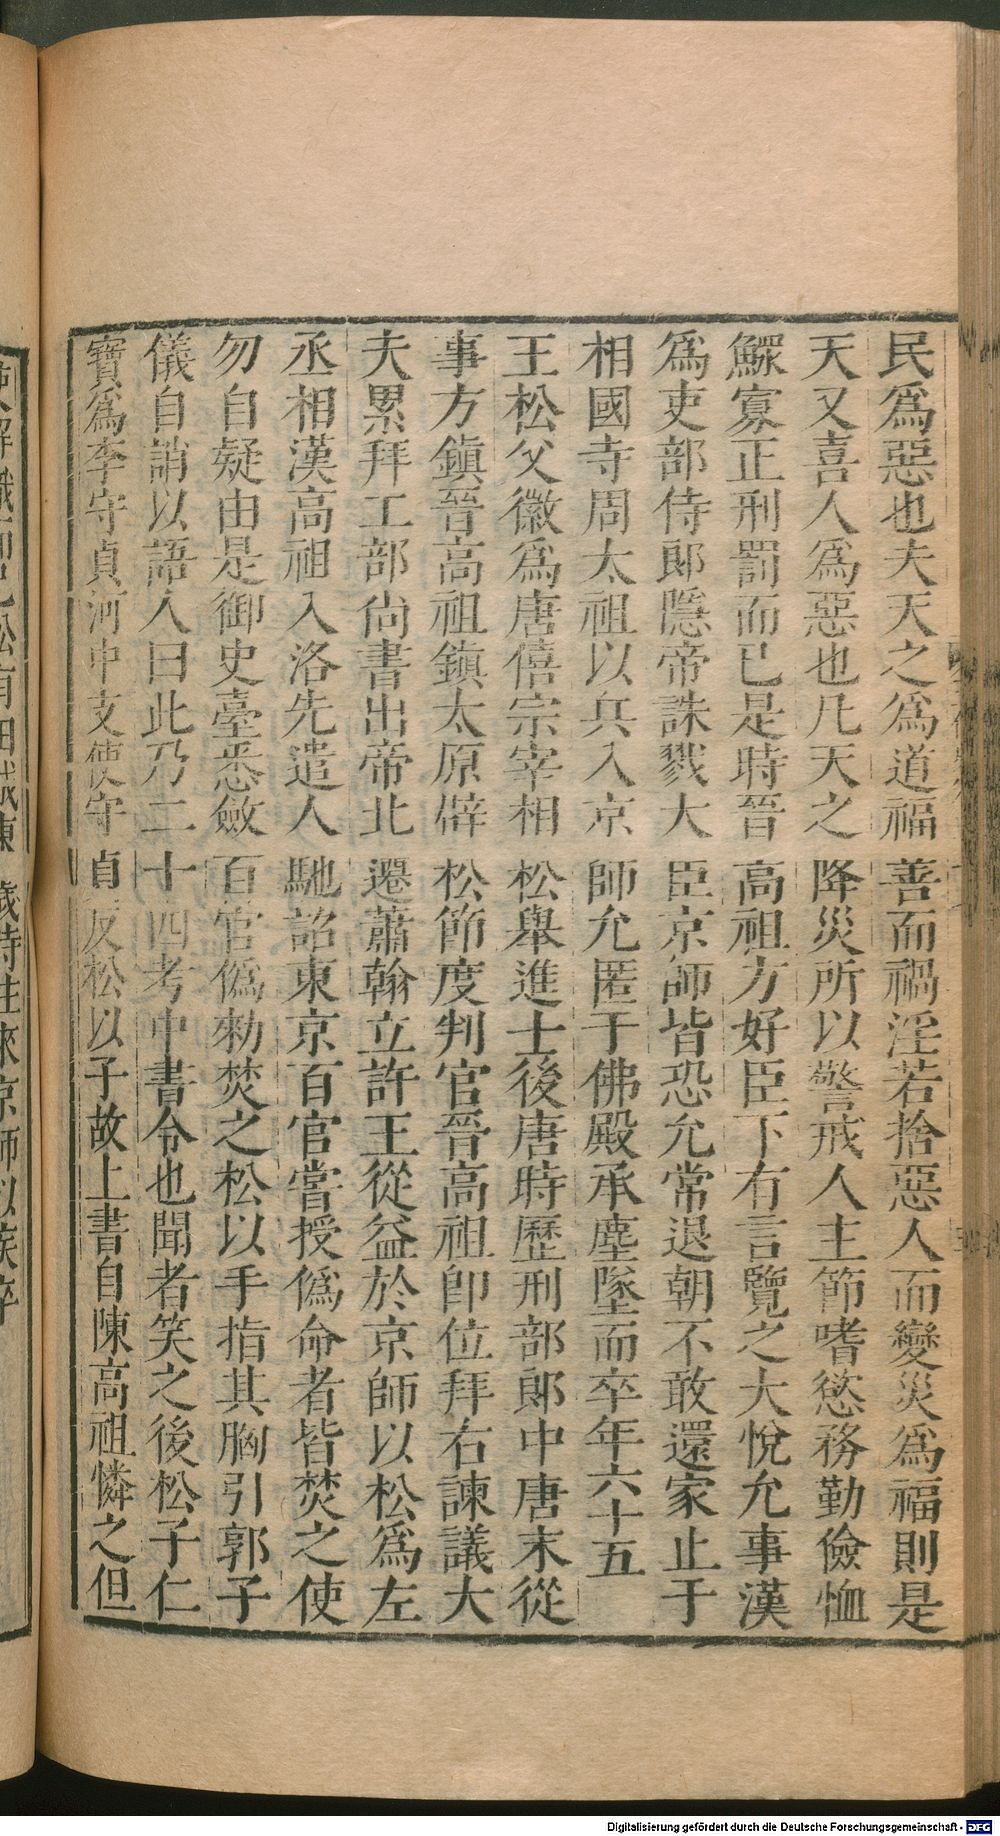 民爲惡也夫天之爲道福善而禍淫若捨惡人而變災爲福則是
天又喜人爲惡也凡天之降災所以警戒人主節嗜慾務勤儉恤
鰥寡正刑罰而已是時晉高祖方好臣下有言覽之大悅允事漢
爲吏部侍郎隱帝誅戮大臣京師皆恐允常退朝不敢還家止于
相國寺周太祖以兵入京師允匿于佛殿承塵墜而卒年六十五
王松父徽爲唐僖宗宰相松舉進士後唐時歷刑部郎中唐末從
事方鎮晉高祖鎮太原辟松節度判官晉高祖即位拜右諫議大
夫累拜工部尚書出帝北遷蕭翰立許王從益於京師以松爲左
丞相漢高祖入洛先遣人馳詔東京百官嘗授僞命者皆焚之使
勿自疑由是御史臺悉斂百官僞勑焚之松以手指其胸引郭子
儀自誚以語人曰此乃二十四考中書令也聞者笑之後松子仁
寶爲李守貞河中支使守貞反松以子故上書自陳高祖憐之但
歲時往來京師以疾卒
Digitalisierung gefördert durch die Deutsche Forschungsgemeinschaft - DFG